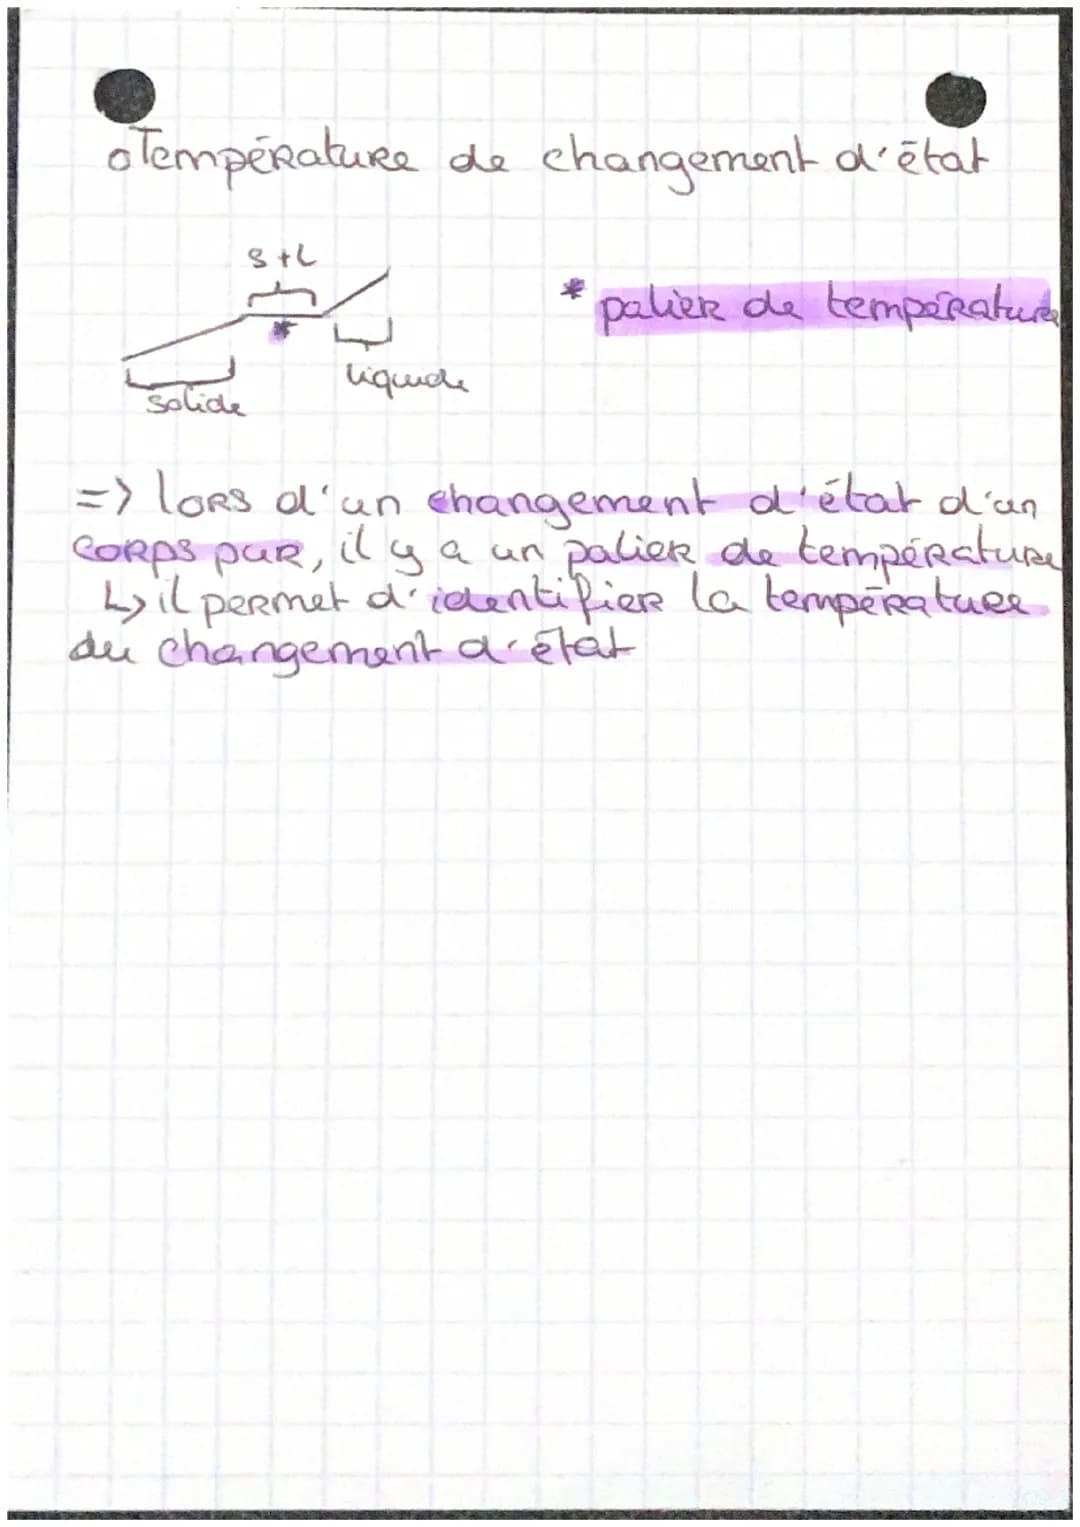 Température de changement d'état
S+L
* palier de température
*
liquide
solide
=> lors d'un changement d'état d'un
corps pur, il y a un palier de température
↳ il permet d'identifier la température
du changement d'état